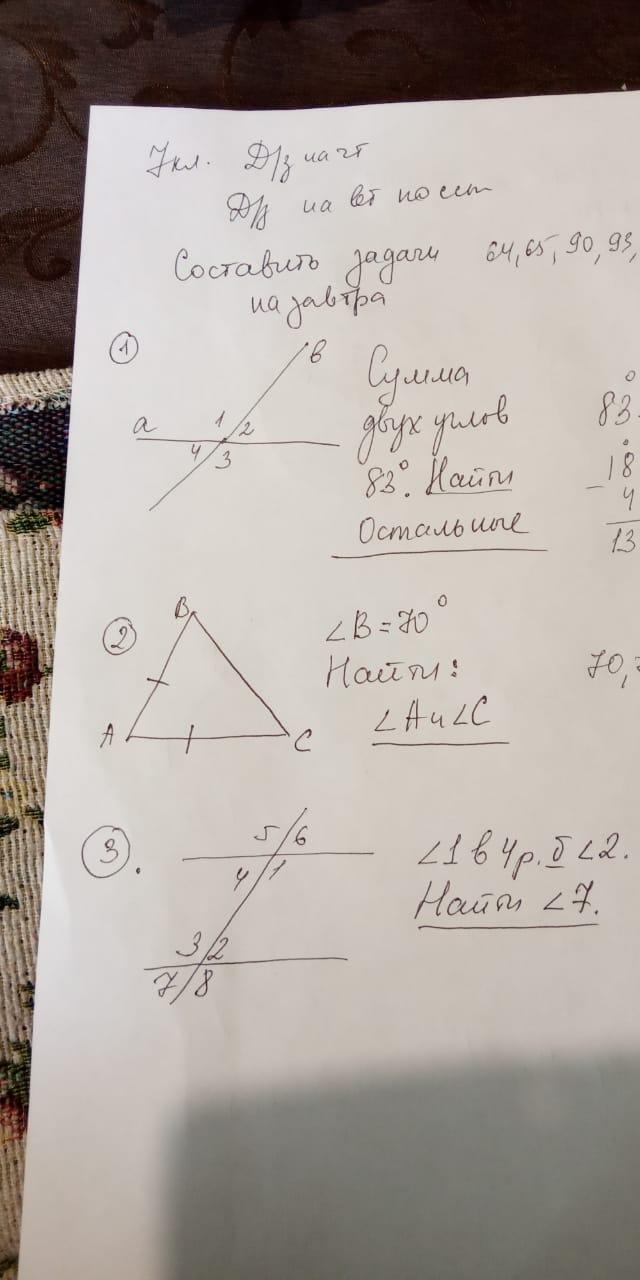 7кл. Д/з на чт
Д/з на вт
Составить задачи 64, 65, 90, 93,
на завтра
① a b 1 2 4 3
Сумма
двух углов
83°. Найти
Остальные
83
18
− 4
13
② B A C
∠B = 70°
Найти:
∠A и ∠C
70,
③. 5 6 4 1 3 2 7 8
∠1 в 4 р. б ∠2.
Найти ∠7.